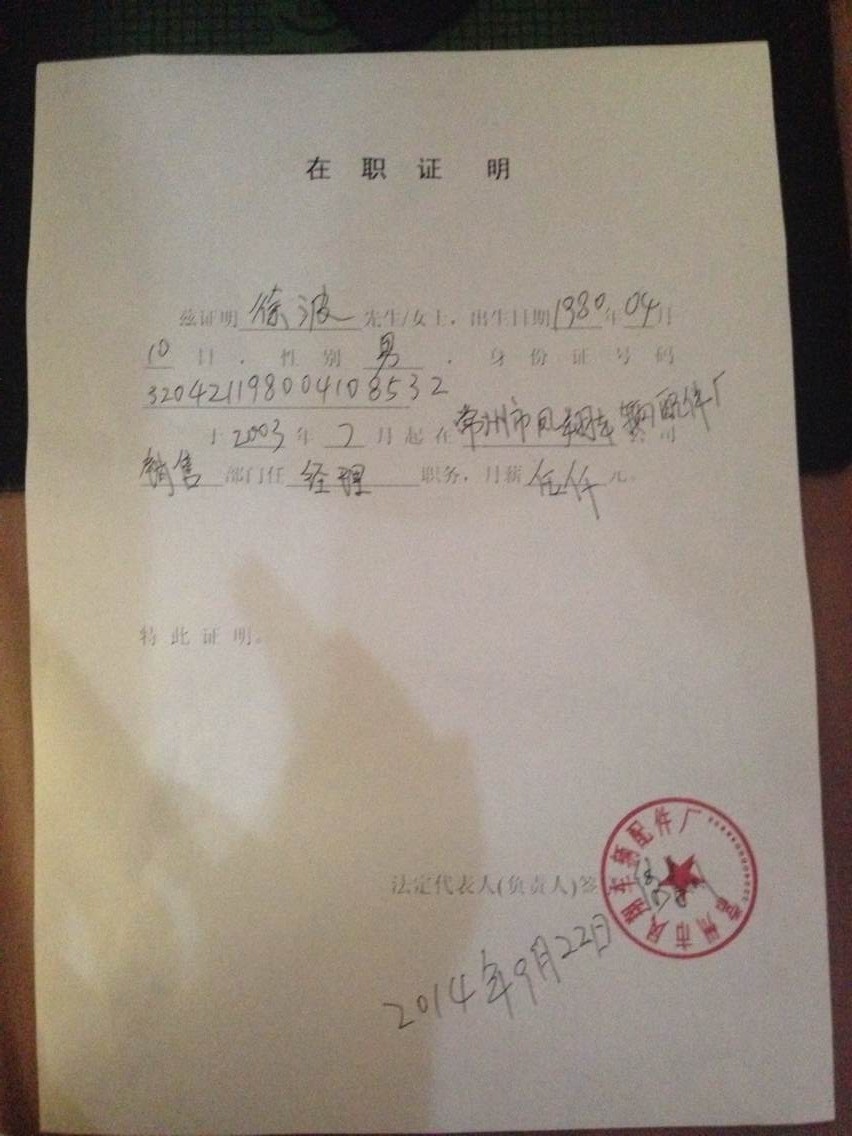 在职证明
兹证明徐波先生/女士，出生日期1980年04月
10日，性别男，身份证号码
320421198004108532
于2003年7月起在常州市凤翔车辆配件厂公司
销售部门任经理职务，月薪伍仟元。
特此证明。
法定代表人(负责人)签
常州市凤翔车辆配件厂
2014年9月22日